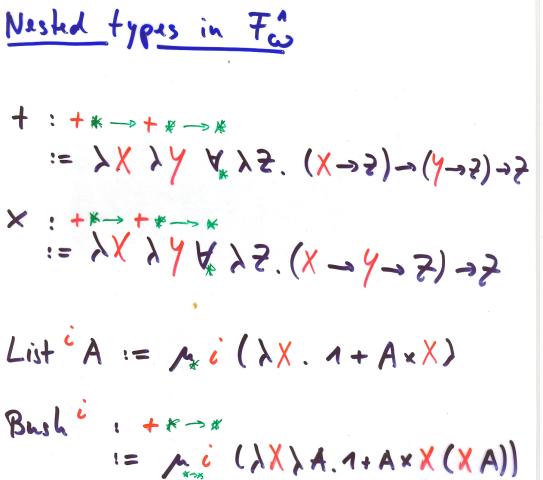 Nested types in F^_ω
+ : +* → +* → *
:= λX λY ∀_* λZ. (X→Z)→(Y→Z)→Z
× : +* → +* → *
:= λX λY ∀_* λZ. (X→Y→Z)→Z
List^i A := μ_* i (λX. 1 + A × X)
Bush^i : +* → *
:= μ_{*→*} i (λX λA. 1 + A × X (X A))